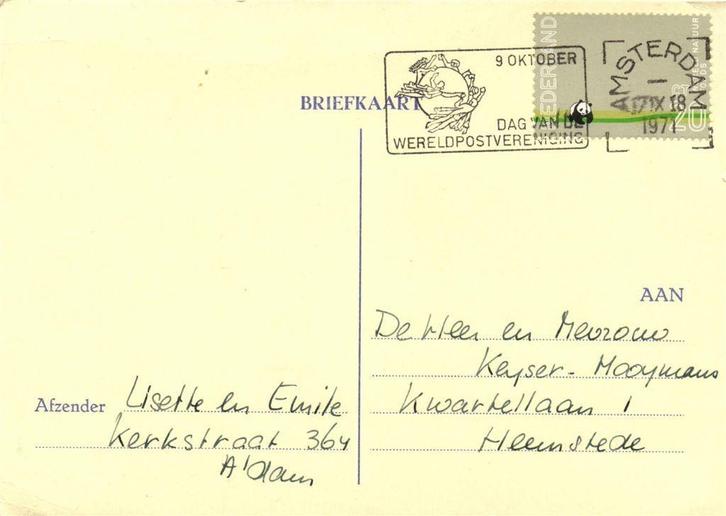 BRIEFKAART
9 OKTOBER
DAG VAN DE
WERELDPOSTVERENIGING
NEDERLAND
AMSTERDAM
17 IX 18
1971
AAN
De Heer en Mevrouw
Keyser-Mooymans
Kwartellaan 1
Heemstede
Afzender Lisette en Emile
Kerkstraat 364
A'dam